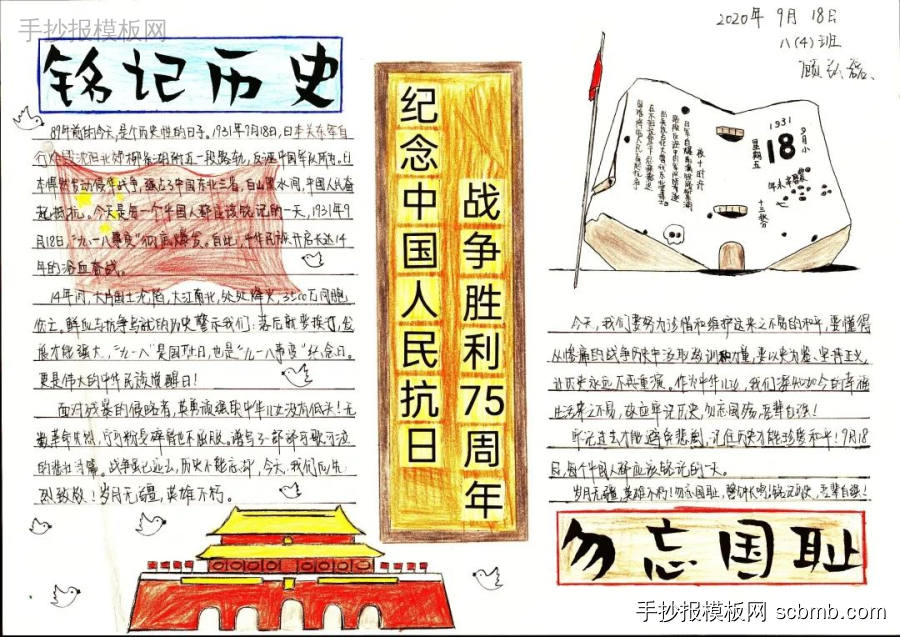 手抄报模板网
2020年 9月 18日
八(4)班
铭记历史
89年前的今天,是个历史性的日子。1931年9月18日,日本关东军自
行炸毁沈阳北郊柳条湖附近一段路轨,反诬中国军队所为,日
本悍然发动侵华战争,强占了中国东北三省,白山黑水间,中国人民奋
起抵抗。今天是每一个中国人都应该铭记的一天,1931年9
月18日,“九·一八事变”彻底爆发。自此,中华民族开启长达14
年的浴血奋战。
14年间,大片国土沦陷,大江南北,处处烽火,3500万同胞
伤亡,鲜血与抗争写就的历史警示我们:落后就要挨打,发
展才能强大,“九一八”是国耻日,也是“九一八事变”纪念日。
更是伟大的中华民族觉醒日!
面对残暴的侵略者,英勇顽强的中华儿女没有低头!无
数革命先烈,宁可粉身碎骨也不屈服。谱写了一部部可歌可泣
的悲壮诗篇。战争虽已远去,历史不能忘却,今天,我们向先
烈致敬!岁月无疆,英雄不朽。
纪念中国人民抗日
战争胜利75周年
1931
9月小
18
星期五
十三
今天,我们要努力珍惜和维护这来之不易的和平,要懂得
从惨痛的战争历史中汲取教训和力量,要以史为鉴、坚持正义,
让历史永远不再重演。作为中华儿女,我们深知如今的幸福
生活来之不易,就应牢记历史,勿忘国殇,吾辈自强!
牢记过去才能避免悲剧,记住历史才能珍爱和平!9月18
日,每个中国人都应该铭记的一天。
岁月无疆,英雄不朽!勿忘国耻,警钟长鸣!铭记历史,吾辈自强!
勿忘国耻
手抄报模板网 scbmb.com